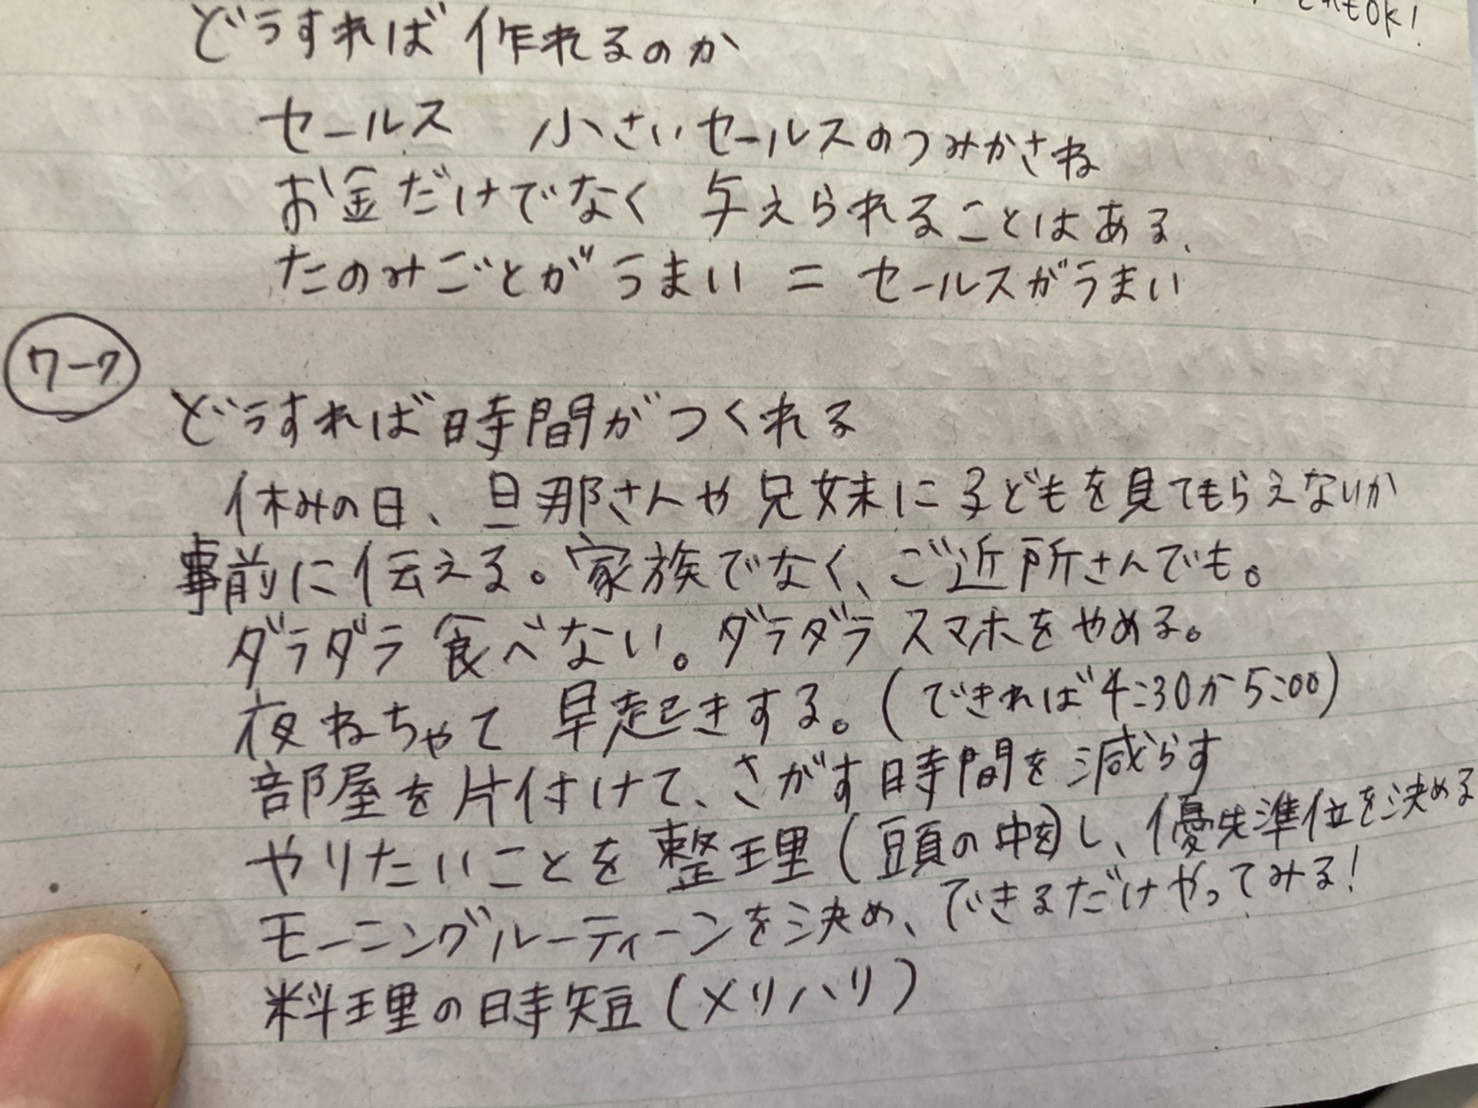 それもOK!
どうすれば作れるのか
セールス 小さいセールスのつみかさね
お金だけでなく 与えられることはある、
たのみごとがうまい = セールスがうまい
ワーク
どうすれば時間がつくれる
休みの日、旦那さんや兄妹に子どもを見てもらえないか
事前に伝える。家族でなく、ご近所さんでも。
ダラダラ食べない。ダラダラスマホをやめる。
夜ねちゃて 早起きする。(できれば4:30か5:00)
部屋を片付けて、さがす時間を減らす
やりたいことを整理(頭の中)し、優先準位を決める
モーニングルーティーンを決め、できるだけやってみる!
料理の時短(メリハリ)